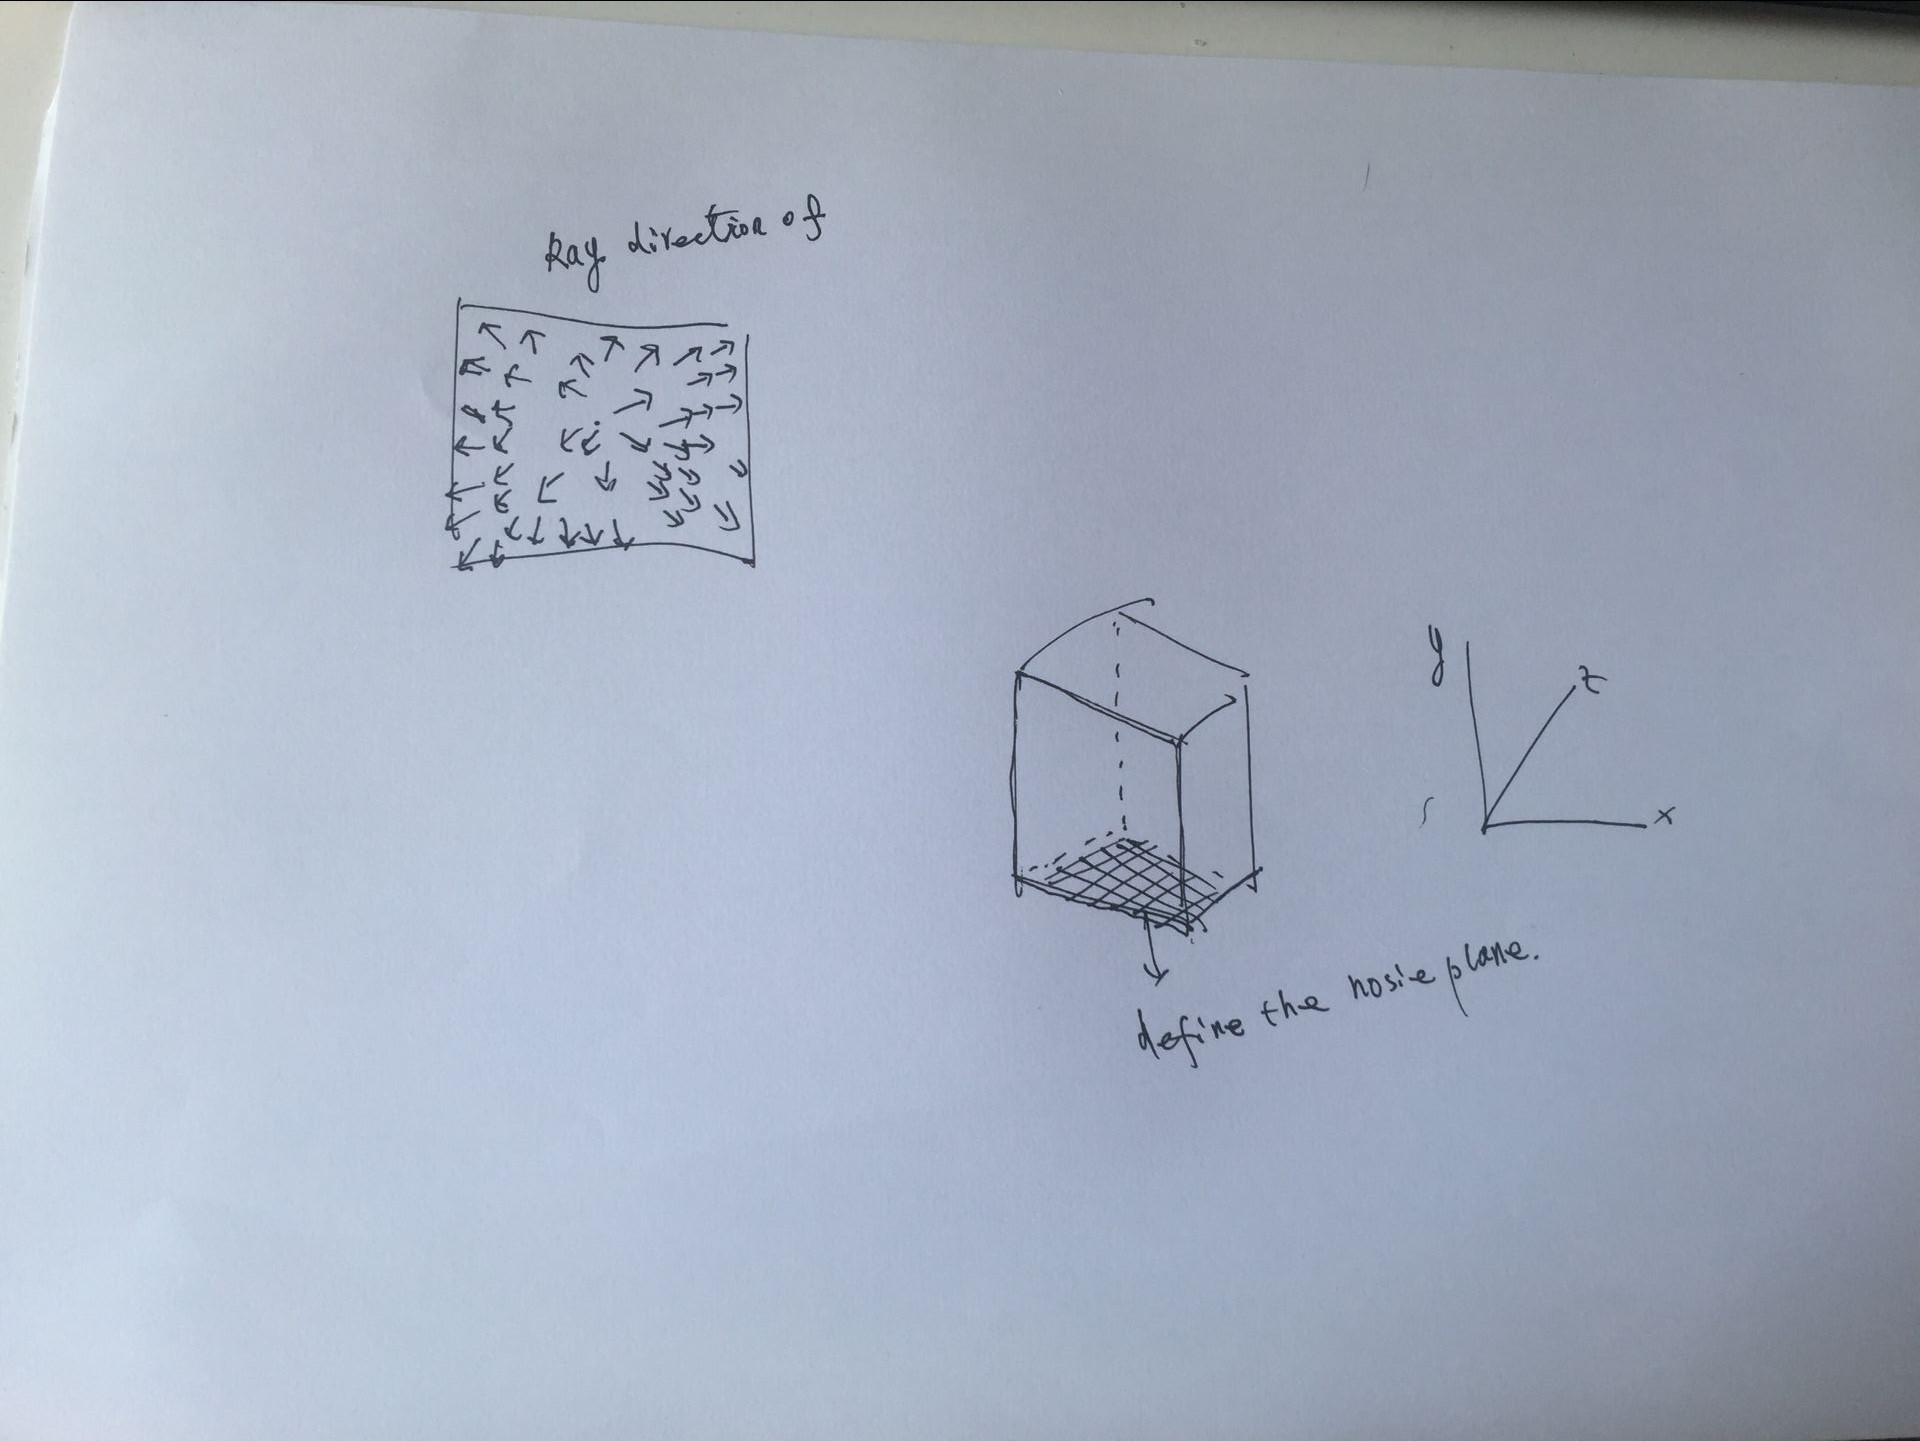 Ray direction of
y
z
x
define the nosie plane.